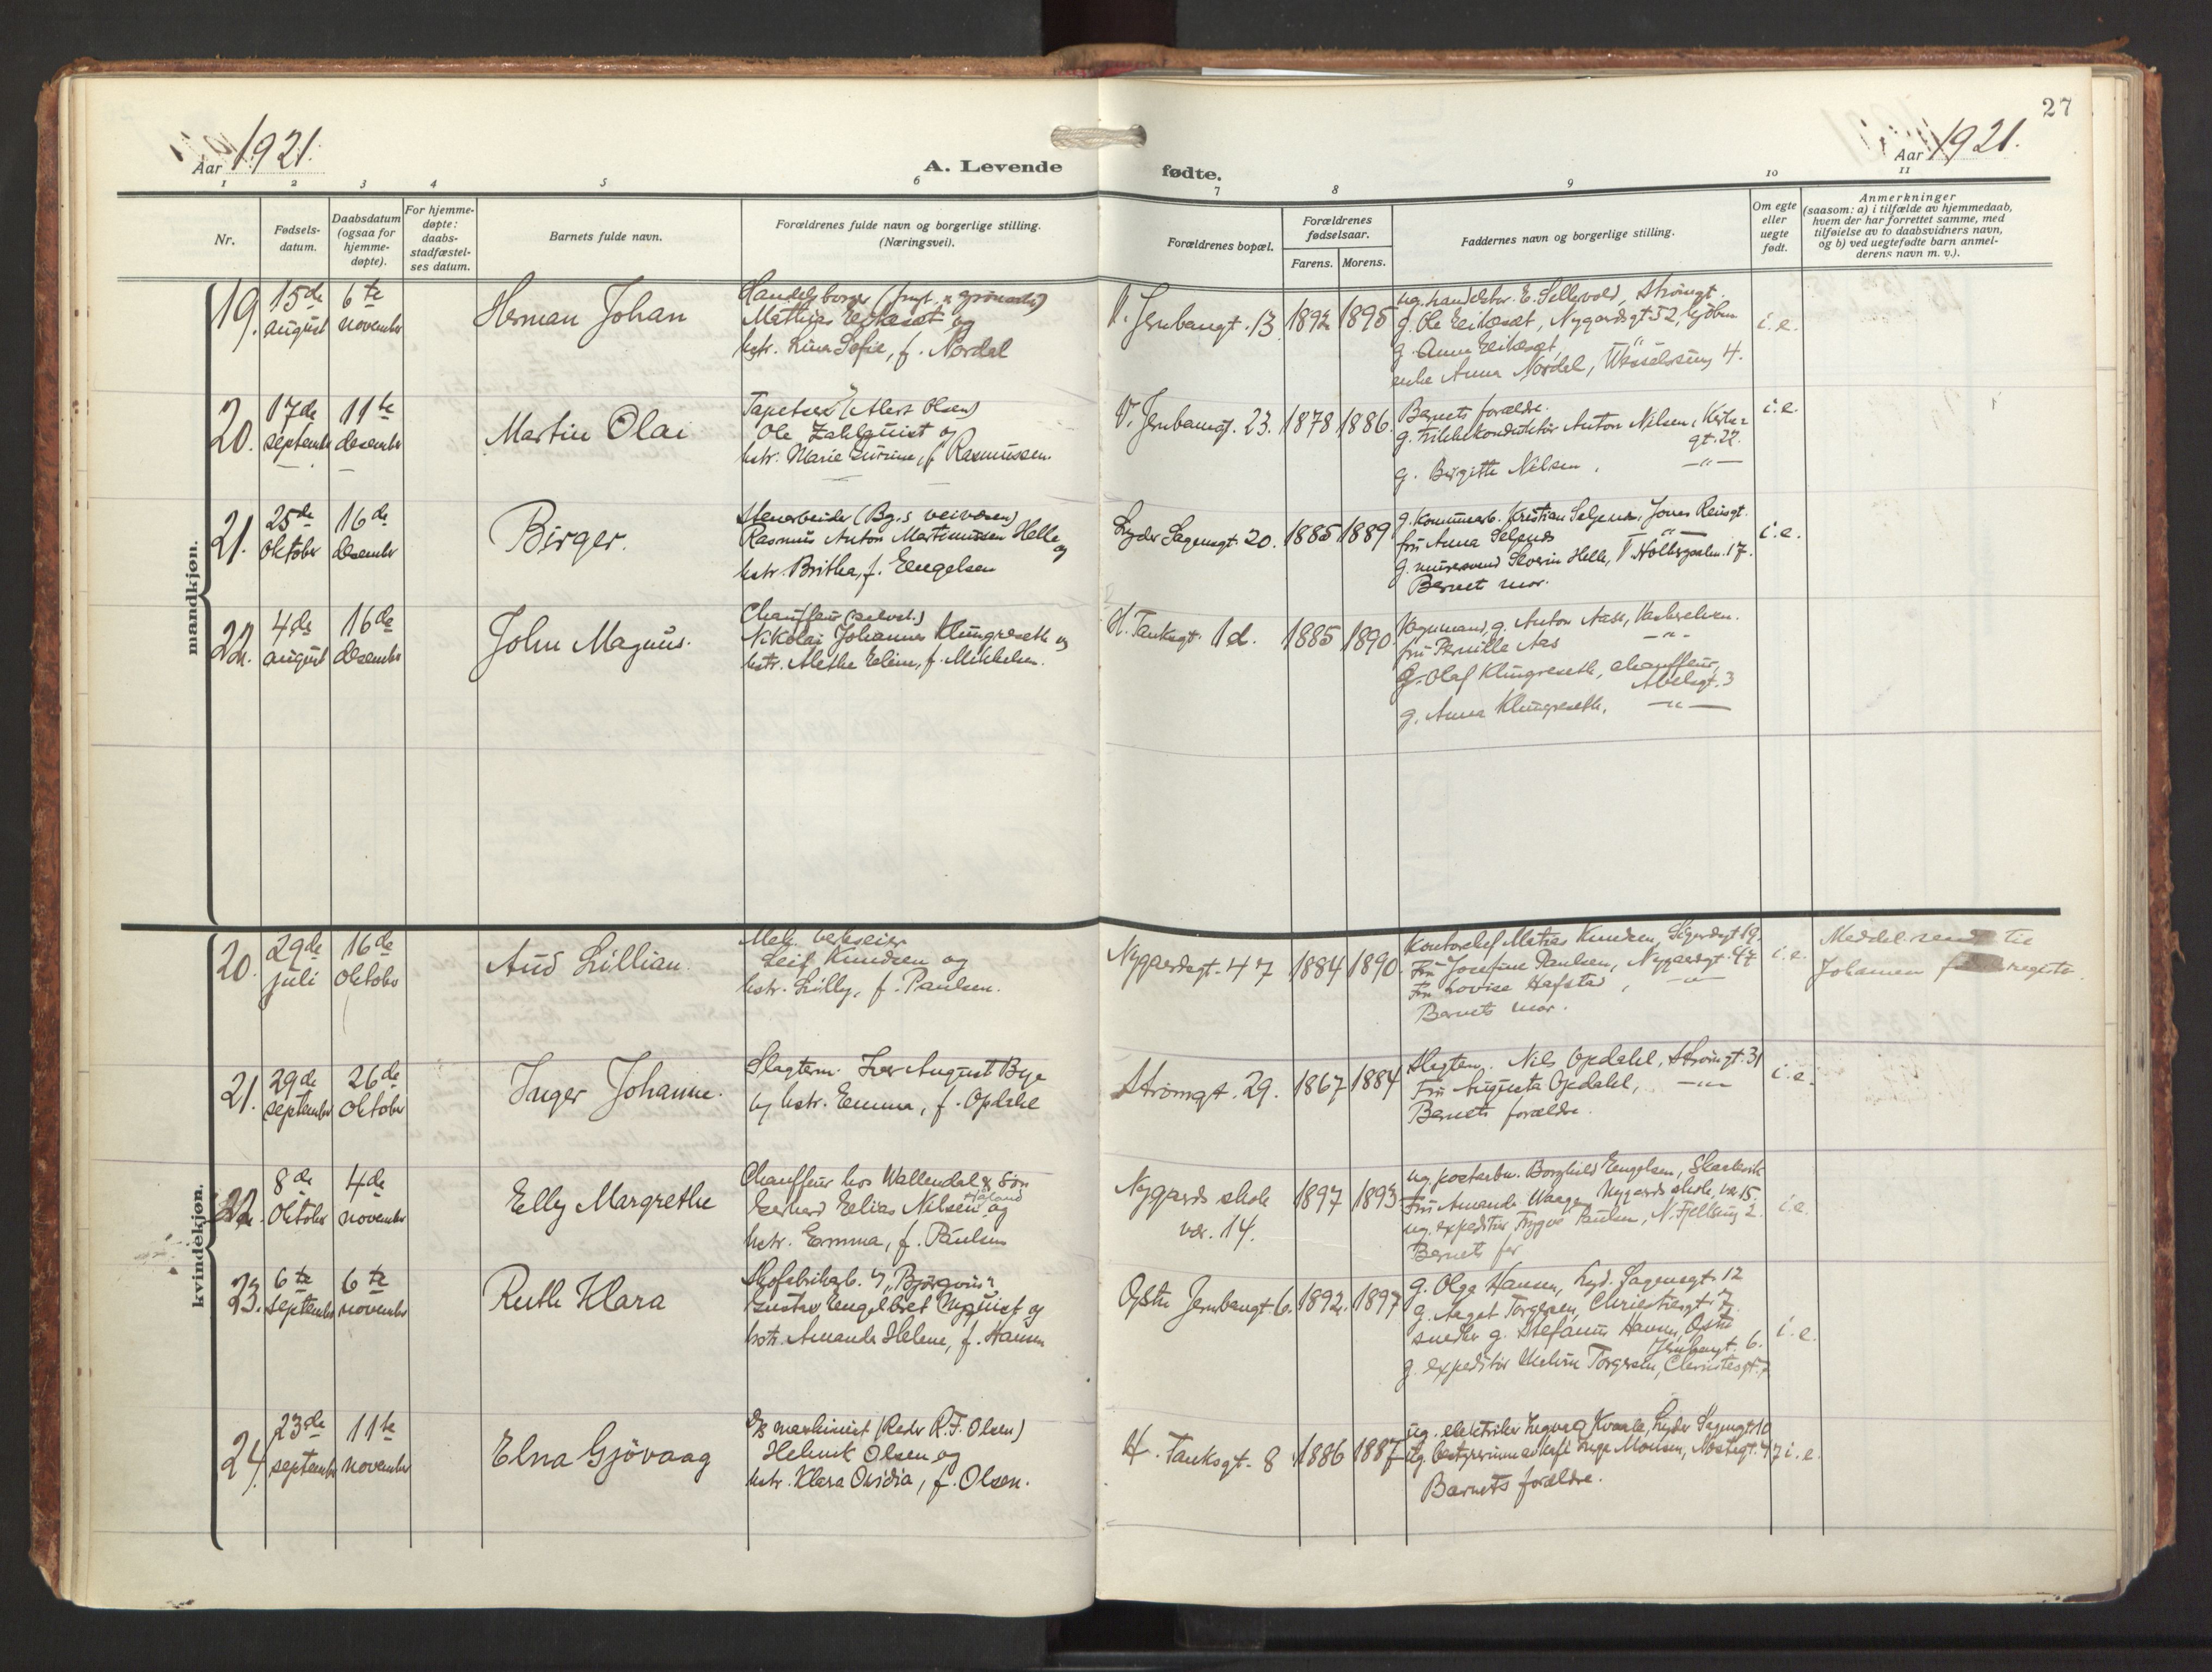 27
Aar 1921.
A. Levende fødte.
Aar 1921.
1 2 3 4 5 6 7 8 9 10 11
Nr.
Fødsels-
datum.
Daabsdatum
(ogsaa for
hjemme-
døpte).
For hjemme-
døpte:
daabs-
stadfæstel-
ses datum.
Barnets fulde navn.
Forældrenes fulde navn og borgerlige stilling.
(Næringsvei).
Forældrenes bopæl.
Forældrenes
fødselsaar.
Farens. Morens.
Faddernes navn og borgerlige stilling.
Om egte
eller
uegte
født.
Anmerkninger
(saasom: a) i tilfælde av hjemmedaab,
hvem der har forrettet samme, med
tilføielse av to daabsvidners navn,
og b) ved uegtefødte barn anmel-
derens navn m. v.).
mandkjøn.
19.
15de
august
6te
november
Herman Johan
Handelsborger
Mathias Eikeset og
hstr. Lina Sofie, f. Nordal
V. Jernbanegt. 13
1892 1895
ug. handelsbr. E. Sellevold, Strömgt.
g. Ole Eikeset, Nygaardsgt 52, kjöbm
g. Anna Eikeset "
enke Anna Nordal, 4.
i. e.
20.
17de
september
11te
desember
Martin Olai
Tapetserer (Albert Olsen)
Ole Zahlquist og
hstr. Marie Gurine, f. Rasmussen.
V. Jernbanegt. 23.
1878 1886.
Barnets forældre.
g. Trikkekonduktör Anton Nilsen,
gt. 22.
g. Birgitte Nilsen, —"—
i. e.
21.
25de
Oktober
16de
desember
Birger.
Stenarbeider (Bg.s veivæsen)
Rasmus Anton Martinussen Helle og
hstr. Britha, f. Engelsen
Lyder Sagensgt. 20.
1885 1889
g. Kommunearb. Kristian Seljenes, Jonas Reinsgt.
fru Anna Seljenes —"—
g. muresvend Severin Helle, V. Holbergsalm. 17.
Barnets mor.
i. e.
22.
4de
august
16de
desember
John Magnus.
Chauffeur (selvst.)
Nikolai Johannes Klungreseth og
hstr. Alethe Eline, f. Mikkelsen.
H. Tanksgt. 1 d.
1885 1890.
Vognmand, g. Anton Aase,
fru Pernille Aas —"—
g. Olaf Klungreseth, chauffeur,
Abelsgt. 3
g. Anna Klungreseth, —"—
kvindekjøn.
20.
29de
juli
16de
Oktober
Aud Lillian.
Mek. verkseier
Leif Knudsen og
hstr. Lilly, f. Paulsen.
Nygaardsgt. 47
1884 1890.
Kontorchef Matias Knudsen, Sigurdsgt 19.
Fru Josefine Paulsen, Nygaardsgt. 47
Fru Lovise Hafstad, —"—
Barnets mor.
i. e.
Meddel. sendt til
21.
29de
september
26de
Oktober
Inger Johanne.
Slagterm. Iver August Bye
og hstr. Emma, f. Opdahl
Strömgt. 29.
1867 1884
Slagterm. Nils Opdahl, Strömgt. 31
Fru Augusta Opdahl, —"—
Barnets forældre.
i. e.
22.
8de
Oktober
4de
november
Elly Margrethe
Chauffeur hos Wallendal & Sön
Gerhard Elias Nilsen og
hstr. Emma, f. Paulsen
Nygaards skole
vær. 14.
1897 1893
ug. postarb. Borghild Engelsen,
Fru Amanda Waage, Nygaards skole, vær 15.
ug. expeditör Trygve Paulsen, N. Fjellsmug 2.
Barnets far
i. e.
23.
6te
september
6te
november
Ruth Klara
Skofabrikarb. v/ „Björgvin"
Gustav Engelbret Nyquist og
hstr. Amanda Helene, f. Hansen
Östre Jernbanegt 6.
1892. 1897
g. Olga Hansen, Lyd. Sagensgt. 12
g. Aagot Torgersen, Christiesgt. 7.
snedker g. Stefanus Hansen, Östre
Jernbanegt. 6.
g. expeditör Torgersen, Christiesgt. 7.
i. e.
24.
23de
september
11te
november
Elna Gjövaag
D/s maskinist (Reder R. F. Olsen)
Helmik Olsen og
hstr. Klara Ovidia, f. Olsen.
H. Tanksgt. 8
1886 1887
ug. elektriker Ingvald Kvaale, Lyder Sagensgt 10
ug. bestyrerinne Monsen, Nöstegt. 47
Barnets forældre.
i. e.